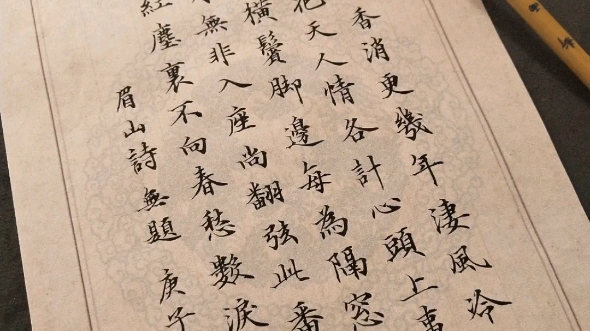 香消更幾年淒風冷
花天人情各計心頭上事
橫鬢脚邊每為隔窓
無非入座尚翻弦此番
塵裏不向春愁數淚
眉山詩無題 庚子